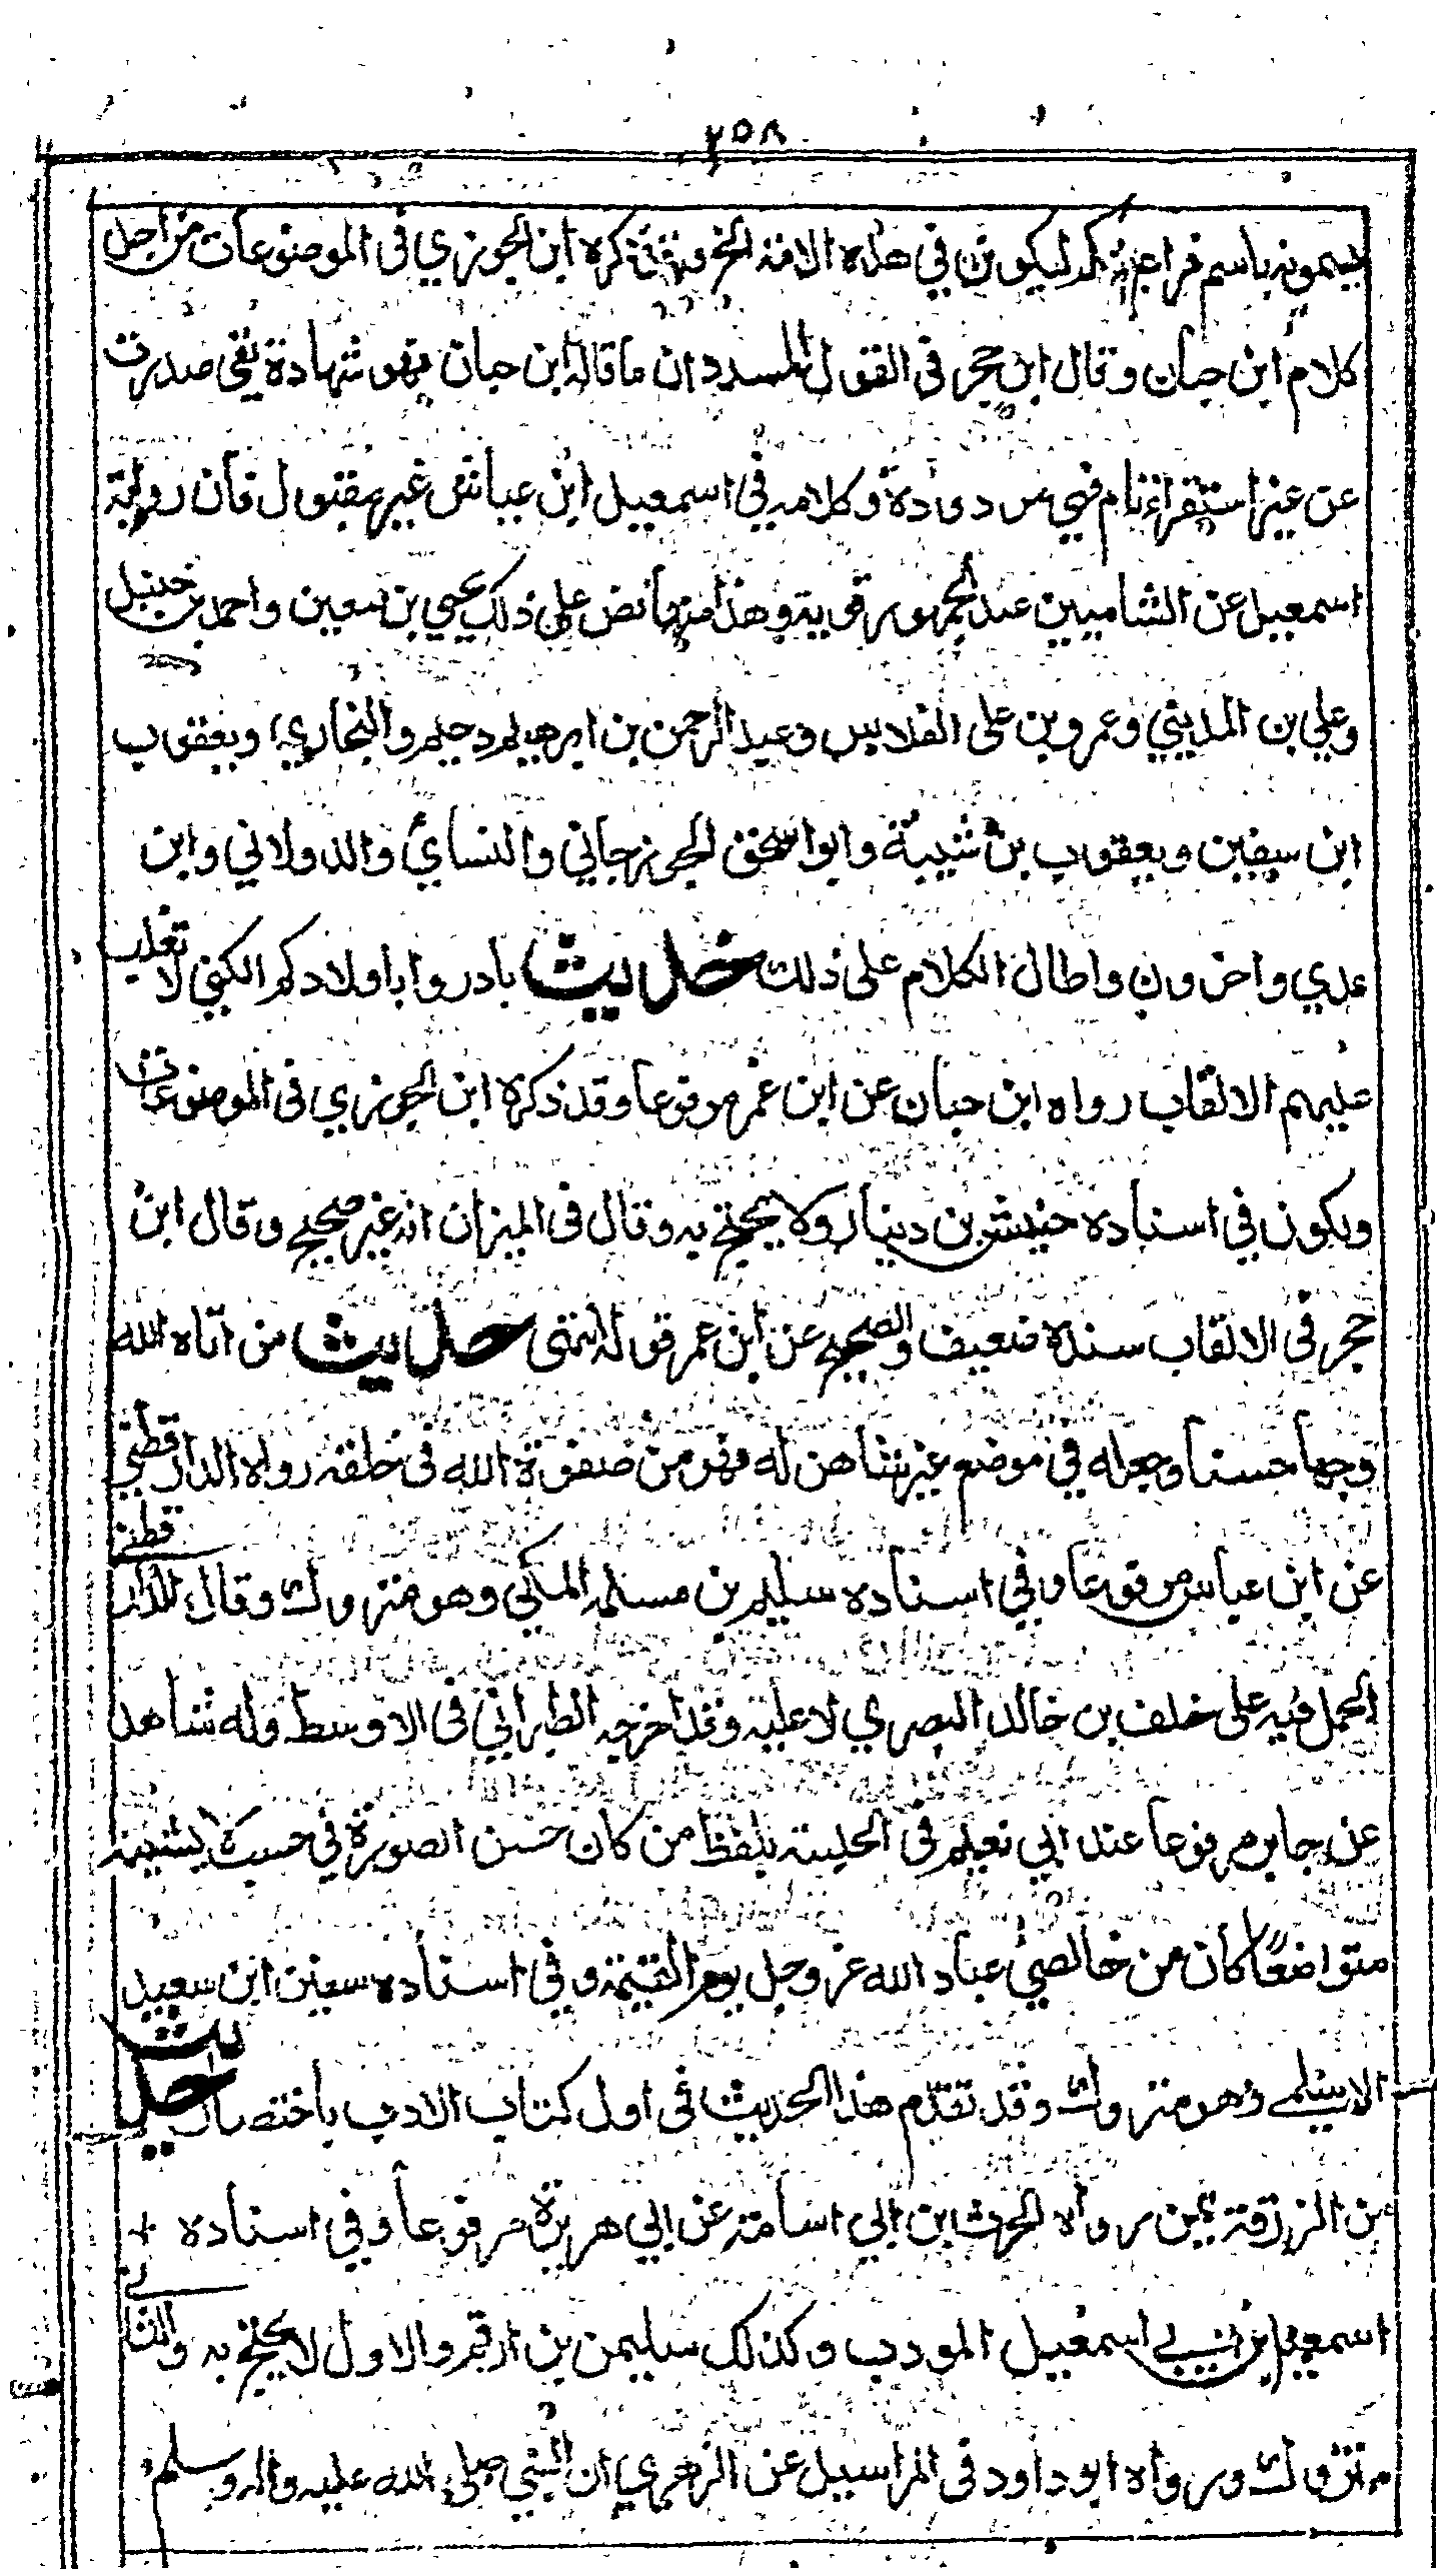 ٢٥٨
يسمونه باسم فراعنتكم ليكونن في هذه الامة الخ وقد ذكره ابن الجوزي فى الموضوعات من اجل
كلام ابن حبان وقال ابن حجر فى القول المسدد ان ما قاله ابن حبان فهو شهادة نفى صدرت
عن غير استقراء تام فهي مردودة وكلامه فى اسمعيل ابن عياش غير مقبول فان رواية
اسمعيل عن الشاميين عند الجمهور قوية وهذا منها نص على ذلك يحيى بن معين واحمد بن حنبل
وعلي بن المديني وعمرو بن على الفلاس وعبد الرحمن بن ابرهيم دحيم والبخاري ويعقوب
ابن سفين ويعقوب بن شيبة وابو اسحق الجوزجاني والنسائي والدولابي وابن
عدي واخرون واطال الكلام على ذلك حديث بادروا باولادكم الكنى لا تغلب
عليهم الالقاب رواه ابن حبان عن ابن عمر مرفوعا وقد ذكره ابن الجوزي فى الموضوعات
ويكون في اسناده حبيش بن دينار ولا يحتج به وقال فى الميزان انه غير صحيح وقال ابن
حجر فى الالقاب سنده ضعيف والصحيح عن ابن عمر قوله انتهى حديث من اتاه الله
وجها حسنا وجعله في موضع غير شاهن له فهو من صفوة الله فى خلقه رواه الدار قطني
عن ابن عباس مرفوعا وفي اسناده سليم بن مسلم المكي وهو متروك وقال الدار قطني
الحمل فيه على خلف بن خالد البصري لا عليه وقد اخرجه الطبراني فى الاوسط وله شاهد
عن جابر مرفوعا عند ابي نعيم فى الحلية بلفظ من كان حسن الصورة في حسب لا يشينه
متواضعا كان من خالصي عباد الله عز وجل يوم القيمة وفي اسناده سفين ابن سعيد
الاسلمي وهو متروك وقد تقدم هذا الحديث فى اول كتاب الادب باختصار حديث
من الزرقة يمن رواه الحرث بن ابي اسامة عن ابي هريرة مرفوعا وفي اسناده
اسمعيل بن ابي اسمعيل المودب وكذلك سليمن بن ارقم والاول لا يحتج به والثاني
متروك ورواه ابو داود فى المراسيل عن الزهري ان النبي صلى الله عليه واله وسلم